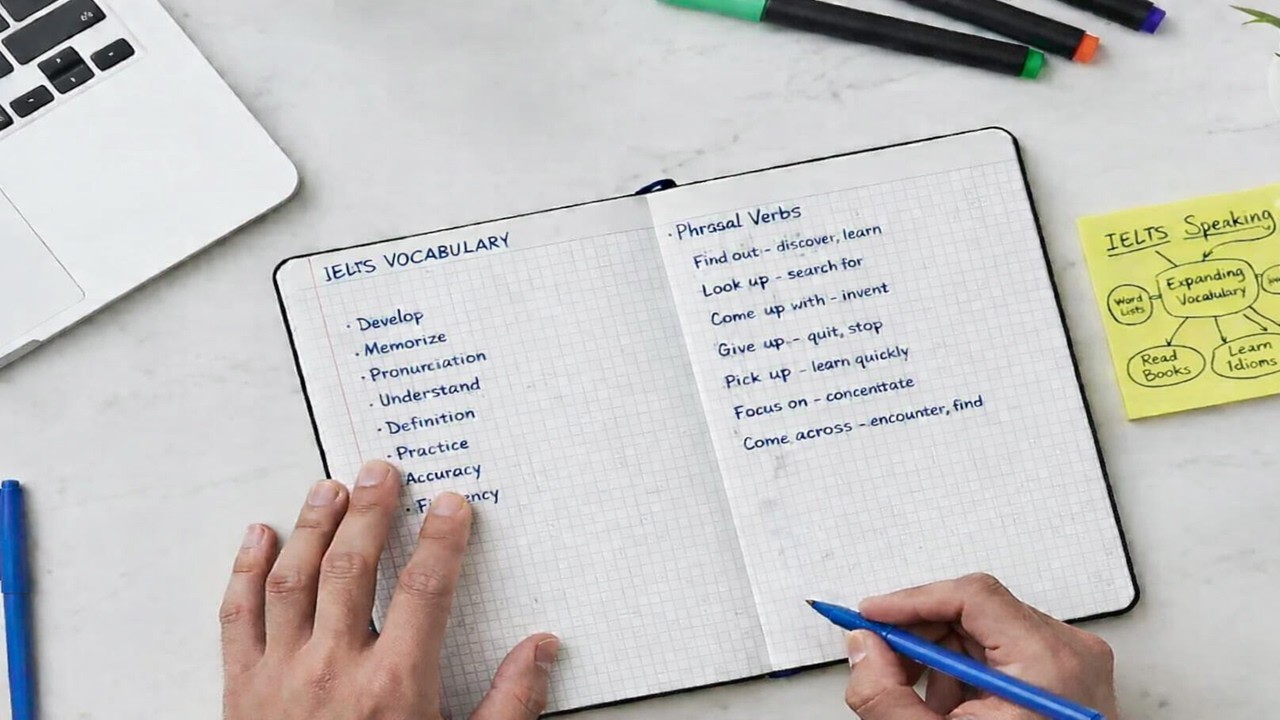 IELTS VOCABULARY
· Develop
· Memorize
· Pronunciation
· Understand
· Definition
· Practice
Accuracy
· Phrasal Verbs
Find out - discover, learn
Look up - search for
Come up with - invent
Give up - quit, stop
Pick up - learn quickly
Focus on - concenitate
Come across - encounter, find
IELTS Speaking
Expanding
Vocabulary
Word
Lists
Read
Books
Learn
Idioms